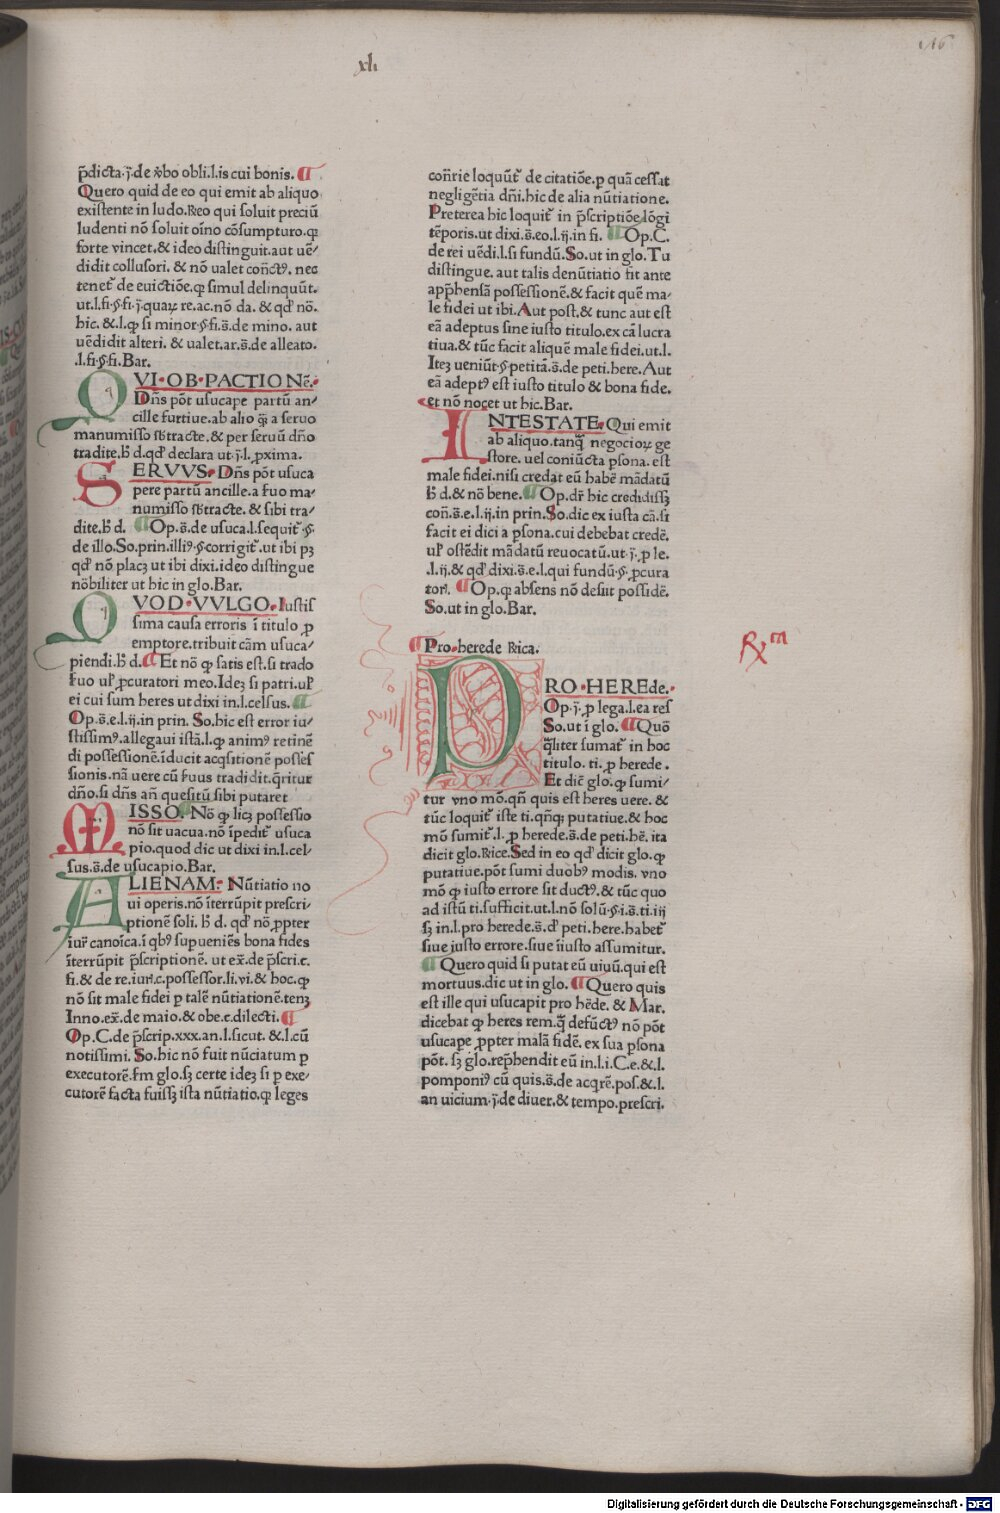 xli
116
p̄dicta.j̄.de v̄bo obli.l.is cui bonis. ¶
Quero quid de eo qui emit ab aliquo
existente in ludo.Reo qui soluit preciū
ludenti nō soluit oīno cōsumpturo.ꝙ
forte vincet.& ideo distinguit.aut uē/
didit collusori. & nō ualet cōn̄ctꝰ. nec
tenet̄ de euictiōe.ꝙ simul delinquūt.
ut.l.fi.§.fi.j̄.quaꝝ re.ac.nō da. & qd' nō.
hic. &.l.ꝙ si minor.§.fi.s̄.de mino. aut
uēdidit alteri. & ualet.ar.s̄.de alleato.
.l.fi.§.fi.Bar.
QVI·OB·PACTIONē.
Dn̄s pōt usucape partū an/
cille furtiue.ab alio q̄ꝫ a seruo
manumisso sb̄tracte.& per seruū dn̄o
tradite.b̄ d.qd' declara ut.j̄.l. ꝓxima.
SERVVS. Dn̄s pōt usuca
pere partū ancille.a suo ma/
numisso sb̄tracte. & sibi tra/
dite.b̄ d. ¶Op.s̄.de usuca.l.sequit̄.§.
de illo.So.prin.illiꝰ.§.corrigit̄.ut ibi pꝫ
qd' nō placꝫ ut ibi dixi.ideo distingue
nōbiliter ut hic in glo.Bar.
QVOD·VVLGO. Iustis
sima causa erroris ī titulo ꝓ
emptore.tribuit cām usuca/
piendi.b̄ d.¶Et nō ꝙ satis est.si trado
suo ul' ꝓcuratori meo.Ideꝫ si patri.ul'
ei cui sum heres ut dixi in.l.celsus. ¶
Op.s̄.e.l.ij.in prin. So.hic est error iu/
stissimꝰ.allegaui istā.l.ꝙ animꝰ retinē
di possessionē.īducit acq̄sitionē posses
sionis.nā uere cū suus tradidit.q̄ritur
dn̄o.si dn̄s an̄ quesitū sibi putaret
MISSO. ¶Nō ꝙ licꝫ possessio
nō sit uacua.nō īpedit̄ usuca
pio.quod dic ut dixi in.l.cel/
sus.s̄.de usucapio.Bar.
ALIENAM: Nūtiatio no
ui operis.nō īterrūpit prescri/
ptionē soli. b̄ d. qd' nō ꝓpter
iur̄ canoīca.ī qb̄ꝰ supueniēs bona fides
īterrūpit p̄scriptionē. ut ex̄.de p̄scri.c.
fi.& de re.iur̄.c.possessor.li.vi.& hoc.ꝙ
nō sit male fidei p talē nūtiationē.tenꝫ
Inno.ex̄.de maio.& obe.c.dilecti.¶
Op.C.de p̄scrip.xxx.an.l.sicut. &.l.cū
notissimi. So.hic nō fuit nūciatum p
executorē.sm glo.sꝫ certe ideꝫ si p exe/
cutorē facta fuissꝫ ista nūtiatio.ꝙ leges
con̄rie loquūt̄ de citatiōe.p quā cessat
negligētia dn̄i.hic de alia nūtiatione.
Preterea hic loquit̄ in p̄scriptiōe lōgi
tēporis.ut dixi.s̄.eo.l.ij.in fi. ¶Op.C.
de rei uēdi.l.si fundū.So.ut in glo.Tu
distingue. aut talis denūtiatio fit ante
app̄hensā possessionē.& facit quē ma/
le fidei ut ibi.Aut post.& tunc aut est
eā adeptus sine iusto titulo.ex cā lucra
tiua.& tūc facit aliquē male fidei.ut.l.
Iteꝫ ueniūt.§.petitā.s̄.de peti.here.Aut
eā adeptꝰ est iusto titulo & bona fide.
et nō nocet ut hic.Bar.
INTESTATE. Qui emit
ab aliquo.tanq̄ꝫ negocioꝝ ge
store. uel coniūcta psona. est
male fidei.nisi credat eū habē mādatū
b̄ d.& nō bene.¶Op.dr̄ hic credidissꝫ
con̄.s̄.e.l.ij.in prin.So.dic ex iusta cā.si
facit ei dici a psona.cui debebat credē.
ul' ostēdit mādatū reuocatū.ut.j̄.ꝓ le.
.l.ij.& qd' dixi.s̄.e.l.qui fundū.§.ꝓcura
tor̄. ¶Op.ꝙ absens nō desiit possidē.
So.ut in glo.Bar.
¶Pro herede Rica.
Rxᵐ
PRO·HEREde.
Op.j̄.ꝓ lega.l.ea res
So.ut ī glo. ¶Quō
q̄liter sumat̄ in hoc
titulo. ti. ꝓ herede.
Et dic̄ glo.ꝙ sumi/
tur vno mō.qn̄ quis est heres uere. &
tūc loquit̄ iste ti.qn̄qꝫ putatiue.& hoc
mō sumit̄.l. ꝓ herede.s̄.de peti.hē. ita
dicit glo.Rice.Sed in eo qd' dicit glo.ꝙ
putatiue.pōt sumi duobꝰ modis. vno
mō ꝙ iusto errore sit ductꝰ.& tūc quo
ad istū ti.sufficit.ut.l.nō solū.§.i.s̄.ti.iij
sꝫ in.l.pro herede.s̄.d' peti.here.habet̄
siue iusto errore.siue īiusto assumitur.
¶ Quero quid si putat eū uiuū.qui est
mortuus.dic ut in glo. ¶Quero quis
est ille qui usucapit pro hēde. & Mar.
dicebat ꝙ heres rem.q̄ꝫ defūctꝰ nō pōt
usucape ꝓpter malā fidē. ex sua psona
pōt. sꝫ glo.rep̄hendit eū in.l.i.C.e.&.l.
pomponiꝰ cū quis.s̄.de acq̄rē.pos.&.l.
an uicium.j̄.de diuer.& tempo.prescri.
Digitalisierung gefördert durch die Deutsche Forschungsgemeinschaft - DFG